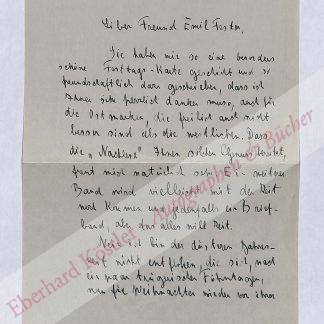 Lieber Freund Emil Fester,
Sie haben mir so eine besonders
schöne Festtags-Karte geschickt und so
freundschaftlich dazu geschrieben, dass ich
Ihnen sehr herzlich danken muss, auch für
die Ostmarken, die freilich auch nicht
besser sind als die westlichen. Dass
die „Nachlese" Ihnen solchen bereitet,
freut mich natürlich sehr. Ein weiterer
Band wird vielleicht mit der Zeit
noch kommen und jedenfalls ein Brief-
band, aber das alles will Zeit.
Nein ich bin der düsteren Jahres-
zeit nicht entflohen, die sich, nach
ein paar trügerischen Föhntagen,
nun für Weihnachten wieder von ihrer
Eberhard Köstler - Autographen & Bücher